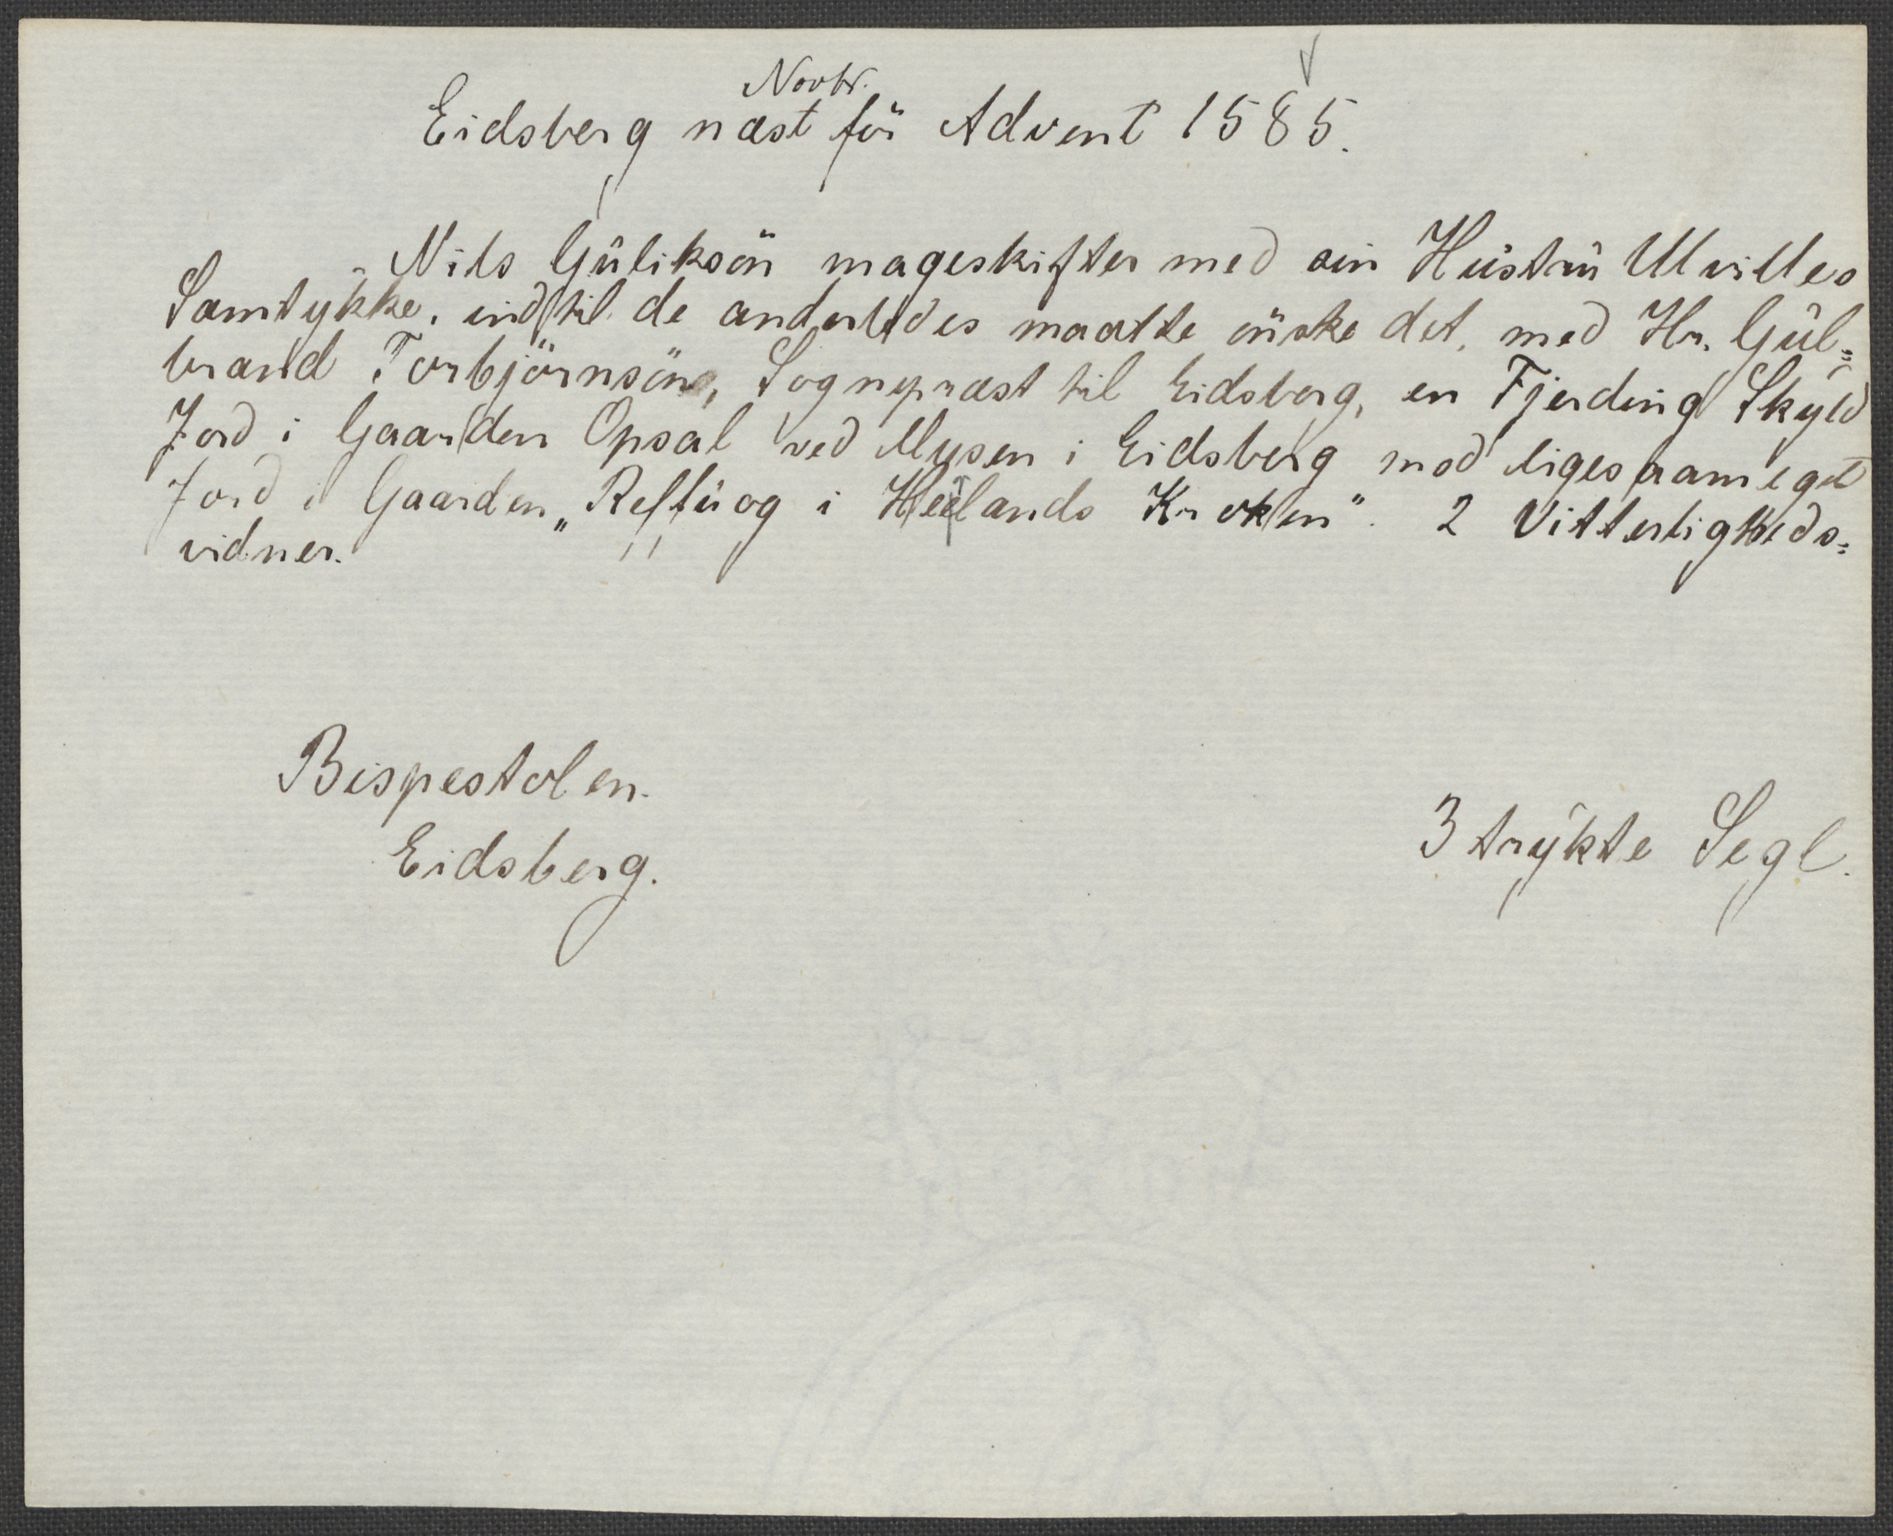 Novbr.
Eidsberg næst för Advent 1585.
Nils Gŭliksön mageskifter med sin Hŭstrŭ Ulvilles
Samtykke, indtil de anderledes maatte önske det, med Hr. Gŭl=
brand Torbjörnsön, Sognepræst til Eidsberg, en Fjerding Skyld
Jord i Gaarden Opsal ved Mysen i Eidsberg mod ligesaameget
Jord i Gaarden „ og i Kroken". 2 Vitterligheds=
vidner.
Bispestolen.
Eidsberg.
3 trykte Segl.